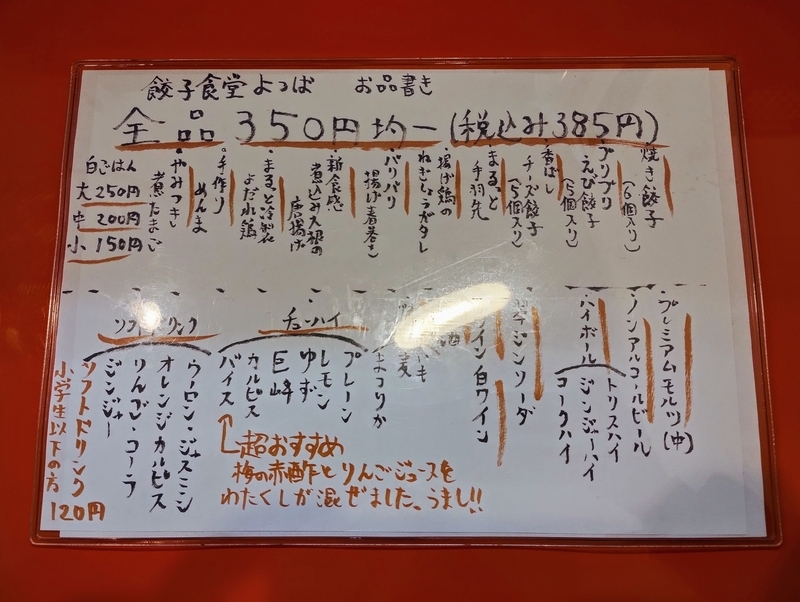 餃子食堂よつば お品書き
全品350円均一(税込み385円)
・焼き餃子
(6個入り)
・プリプリ
えび餃子
(5個入り)
・香ばし
チーズ餃子
(5個入り)
・まるっと
手羽先
・揚げ鶏の
ねぎしょうがダレ
・パリパリ
揚げ春巻き
・新食感
煮込み大根の
唐揚げ
・まるっと冷製
よだれ鶏
・手作り
めんま
・やみつき
煮たまご
白ごはん
大 250円
中 200円
小 150円
・プレミアムモルツ(中)
・ノンアルコールビール
・ハイボール
トリスハイ
ジンジャーハイ
コークハイ
ジンソーダ
ワイン 白ワイン
・チューハイ
プレーン
レモン
ゆず
巨峰
カルピス
バイス
超おすすめ
梅の赤酢とりんごジュースを
わたくしが混ぜました。うまし!!
・ソフトドリンク
ウーロン・ジャスミン
オレンジ・カルピス
りんご・コーラ
ジンジャー
小学生以下の方
ソフトドリンク
120円